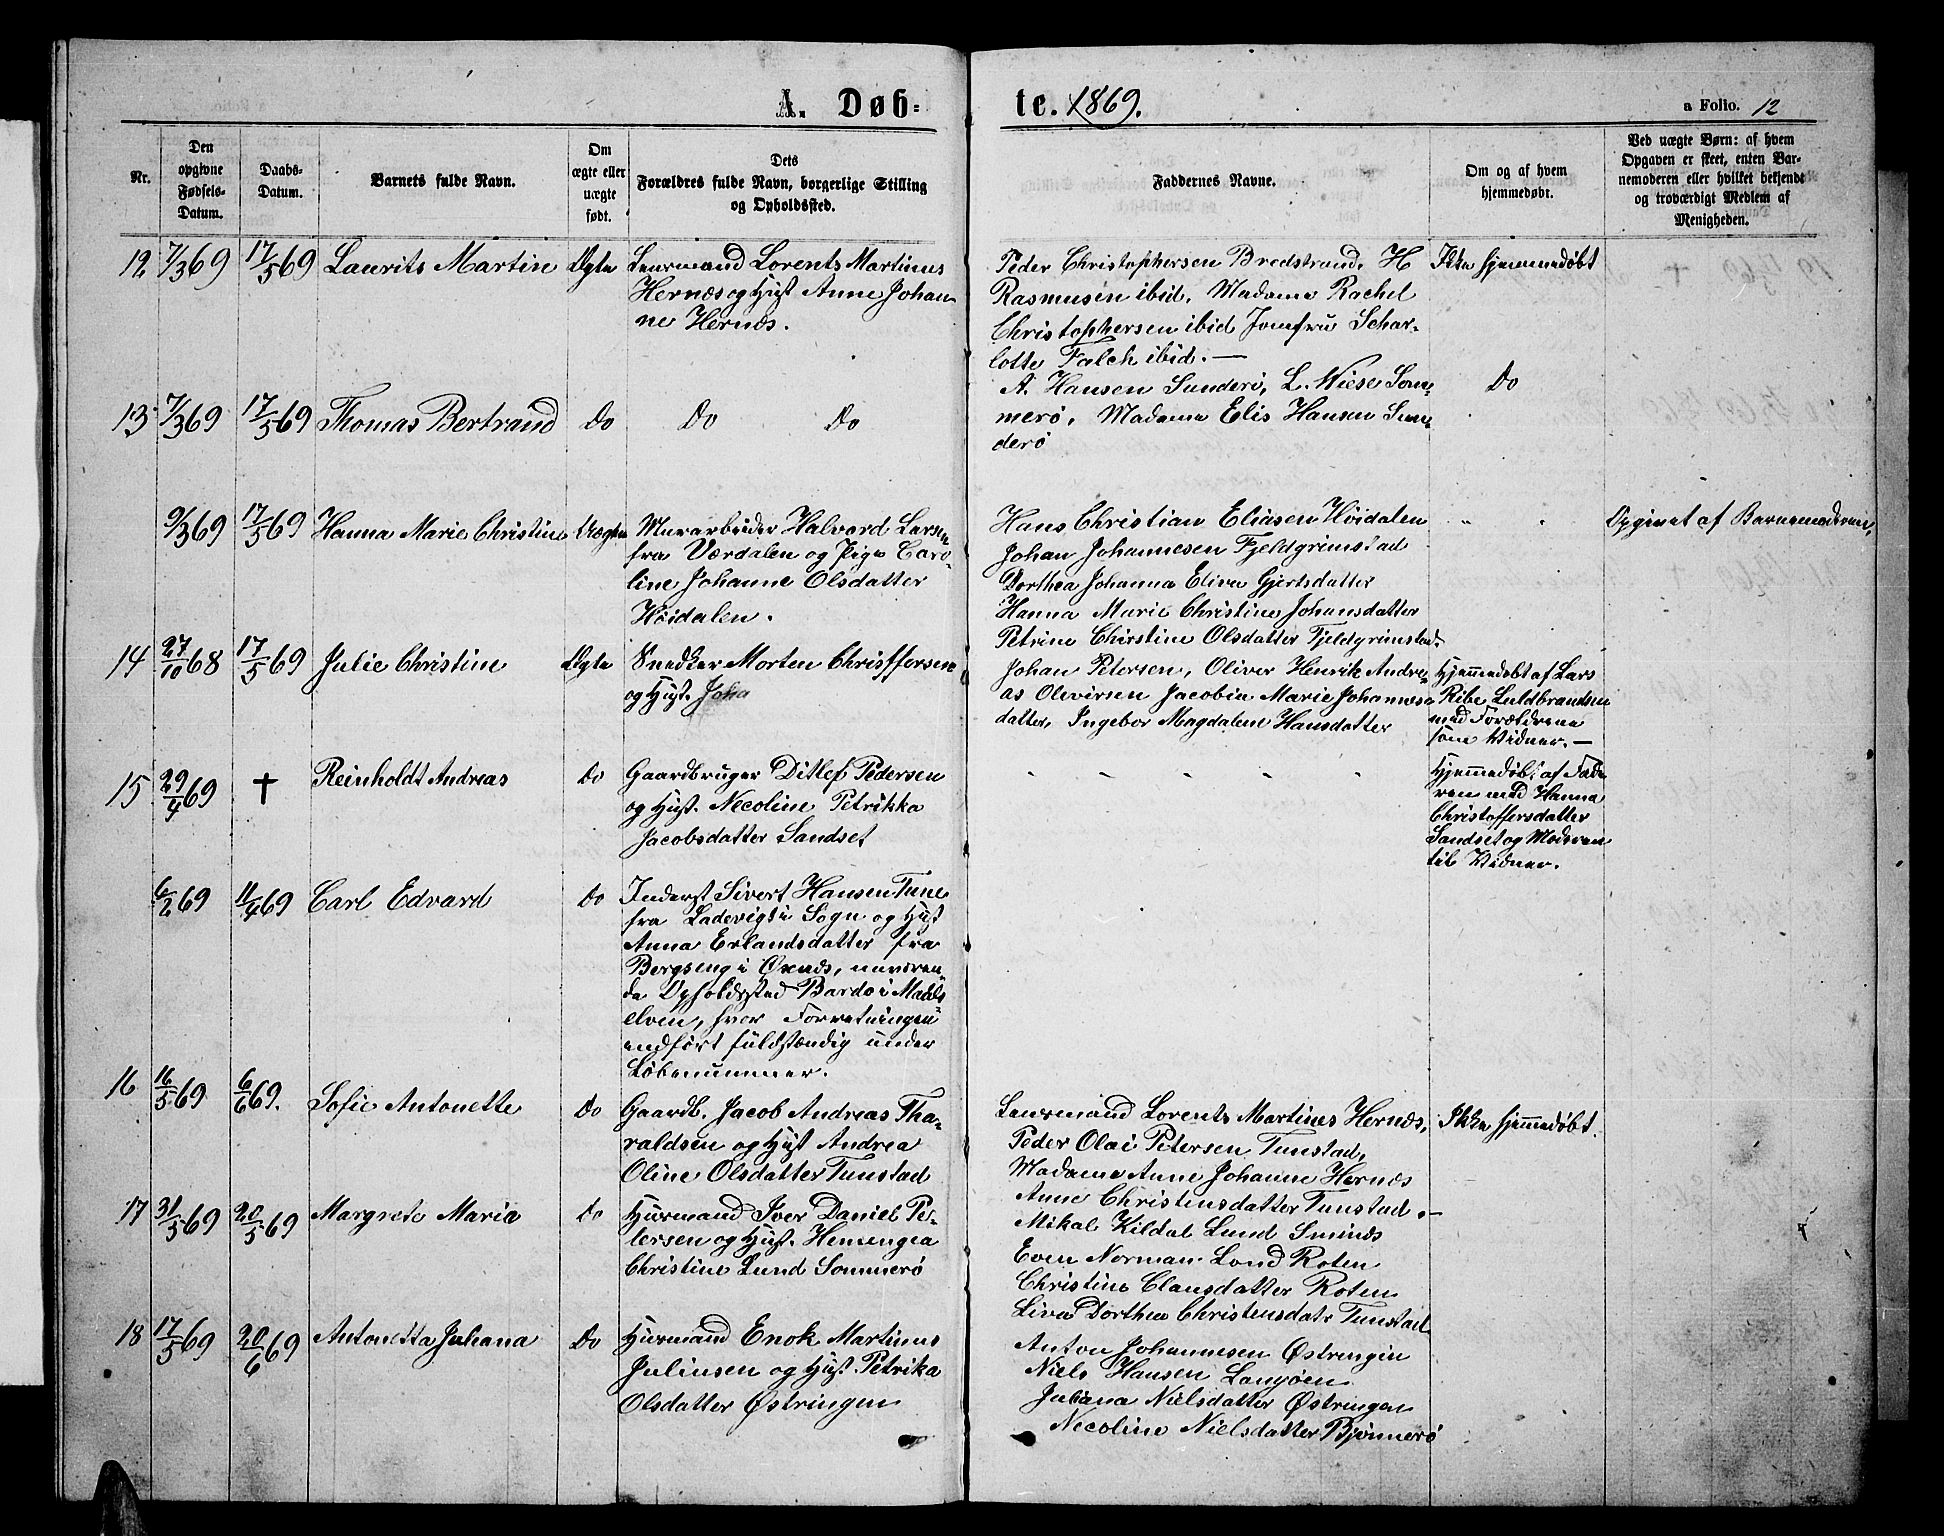 A. Døb- te. 1869.
a Folio. 12
Nr.
Den opgivne Fødsels-Datum.
Daabs-Datum.
Barnets fulde Navn.
Om ægte eller uægte født.
Dets Forældres fulde Navn, borgerlige Stilling og Opholdssted.
Faddernes Navne.
Om og af hvem hjemmedøbt.
Ved uægte Børn: af hvem Opgaven er skeet, enten Barnemoderen eller hvilket bekjendt og troværdigt Medlem af Menigheden.
12 7/3 69 17/5 69 Laurits Martin Ægte
Leiermand Lorents Martinus
Hernæs og Hust Anne Johan-
ne Hernæs.
Peder Christophersen Bredstrand, H
Rasmusen ibid, Madame Rachel
Christophersen ibid Jomfru Schar-
lotte Falch ibid. —
Ikke hjemmedøbt
13 7/3 69 17/5 69 Thomas Bertrand Do Do Do
A. Hansen Sanderö, L. Wiese Som-
merö, Madame Elis Hansen San-
derö
Do
9/3 69 17/5 69 Hanna Marie Christine Uægte
Murarbeider Halvord Larsen
fra Værdalen og Pige Caro-
line Johanne Olsdatter
Höidalen.
Hans Christian Eliasen Höidalen
Johan Johannesen Fjeldgrimstad
Dorthea Johanna Elive Gjertsdatter
Hanna Marie Christine Johansdatter
Petrine Chirstine Olsdatter Fjeldgrimstad
" "
Opgivet af Barnemoderen.
14 27/10 68 17/5 69 Julie Christine Ægte
Snedker Morten Christffersen
og Hust. Joha
Johan Petersen, Oliver Henrik Andre-
as Olevirsen Jacobine Marie Johannes-
datter, Ingebor Magdalene Hansdatter
Hjemmedøbt af Lars
Ribe Luldbrandsen
med Forældrene
som Vidner. —
15 29/4 69 † Reinholdt Andreas Do
Gaardbruger Ditlef Pedersen
og Hust. Necoline Petrikka
Jacobsdatter Sandset
" " " "
Hjemmedøbt af Fade-
ren med Hanna
Christoffersdatter
Sandset og Moderen
til Vidner.
6/2 69 11/4 69 Carl Edvard Do
Inderst Sivert Hansen Tune
fra Ladevig i Sogn og Hust
Anna Erlandsdatter fra
Bergseng i Øxnæs, nuværen-
de Opholdssted Bardo i Maals-
elven, hvor Forretningen
indfört fuldstændig under
Löbenummer.
16 16/5 69 6/6 69. Sofie Antonette Do
Gaardb. Jacob Andreas Tha-
raldsen og Hust Andrea
Oline Olsdatter Tunstad
Leiermand Lorents Martines Hernæs,
Peder Olai Petersen Tunstad,
Madame Anne Johanne Hernæs
Anne Christensdatter Tunstad. —
Ikke hjemmedøbt.
17 31/5 69 20/5 69 Margrete Maria Do
Husmand Iver Daniel Pe-
tersen og Hust. Hemengea
Christine Lund Sommerö
Mikal Kildal Lund Sminæs
Even Norman Lond Roten
Christine Clausdatter Roten
Liva Dorthea Christensdatr Tunstad
18 17/5 69 20/6 69 Antonetta Johana Do
Husmand Enok Martinus
Juliusen og Hust. Petrika
Olsdatter Østringen
Anton Johannesen Østrengin
Niels Hansen Langöen
Juliana Nielsdatter Østringen
Necoline Nielsdatter Bjønnerö